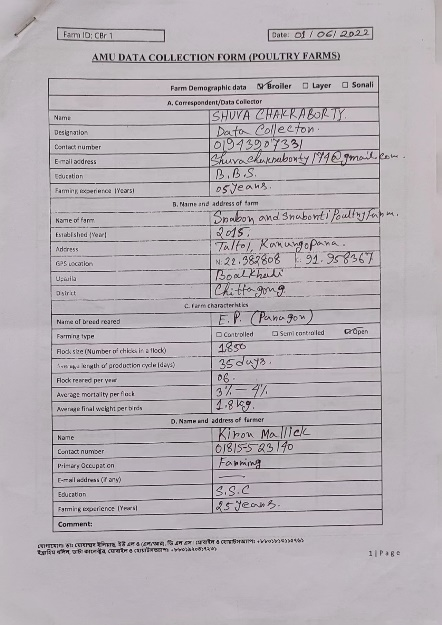 Farm ID: CBr 1
Date: 01/06/2022
AMU DATA COLLECTION FORM (POULTRY FARMS)
Farm Demographic data ☑ Broiler ☐ Layer ☐ Sonali
A. Correspondent/Data Collector
Name SHUVA CHAKRABORTY.
Designation Data Collector.
Contact number 01943907331
E-mail address Shuvachakraborty194@gmail.com.
Education B.B.S.
Farming experience (Years) 05 Years.
B. Name and address of farm
Name of farm Srabon and Srabonti Poultry Farm.
Established (Year) 2015.
Address Taltol, Kanungopana.
GPS Location N: 22.382808 E. 91.958367
Upazila Boalkhali
District Chittagong
C. Farm characteristics
Name of breed reared E.P. (Paragon)
Farming type ☐ Controlled ☐ Semi controlled ☑ Open
Flock size (Number of chicks in a flock) 1850
Average length of production cycle (days) 35 days.
Flock reared per year 06.
Average mortality per flock 3% - 4%
Average final weight per birds 1.8 kg.
D. Name and address of farmer
Name Kiron Mallick
Contact number 01815523140
Primary Occupation Farming
E-mail address (if any) —
Education S.S.C
Farming experience (Years) 25 Years.
Comment:
1 | Page